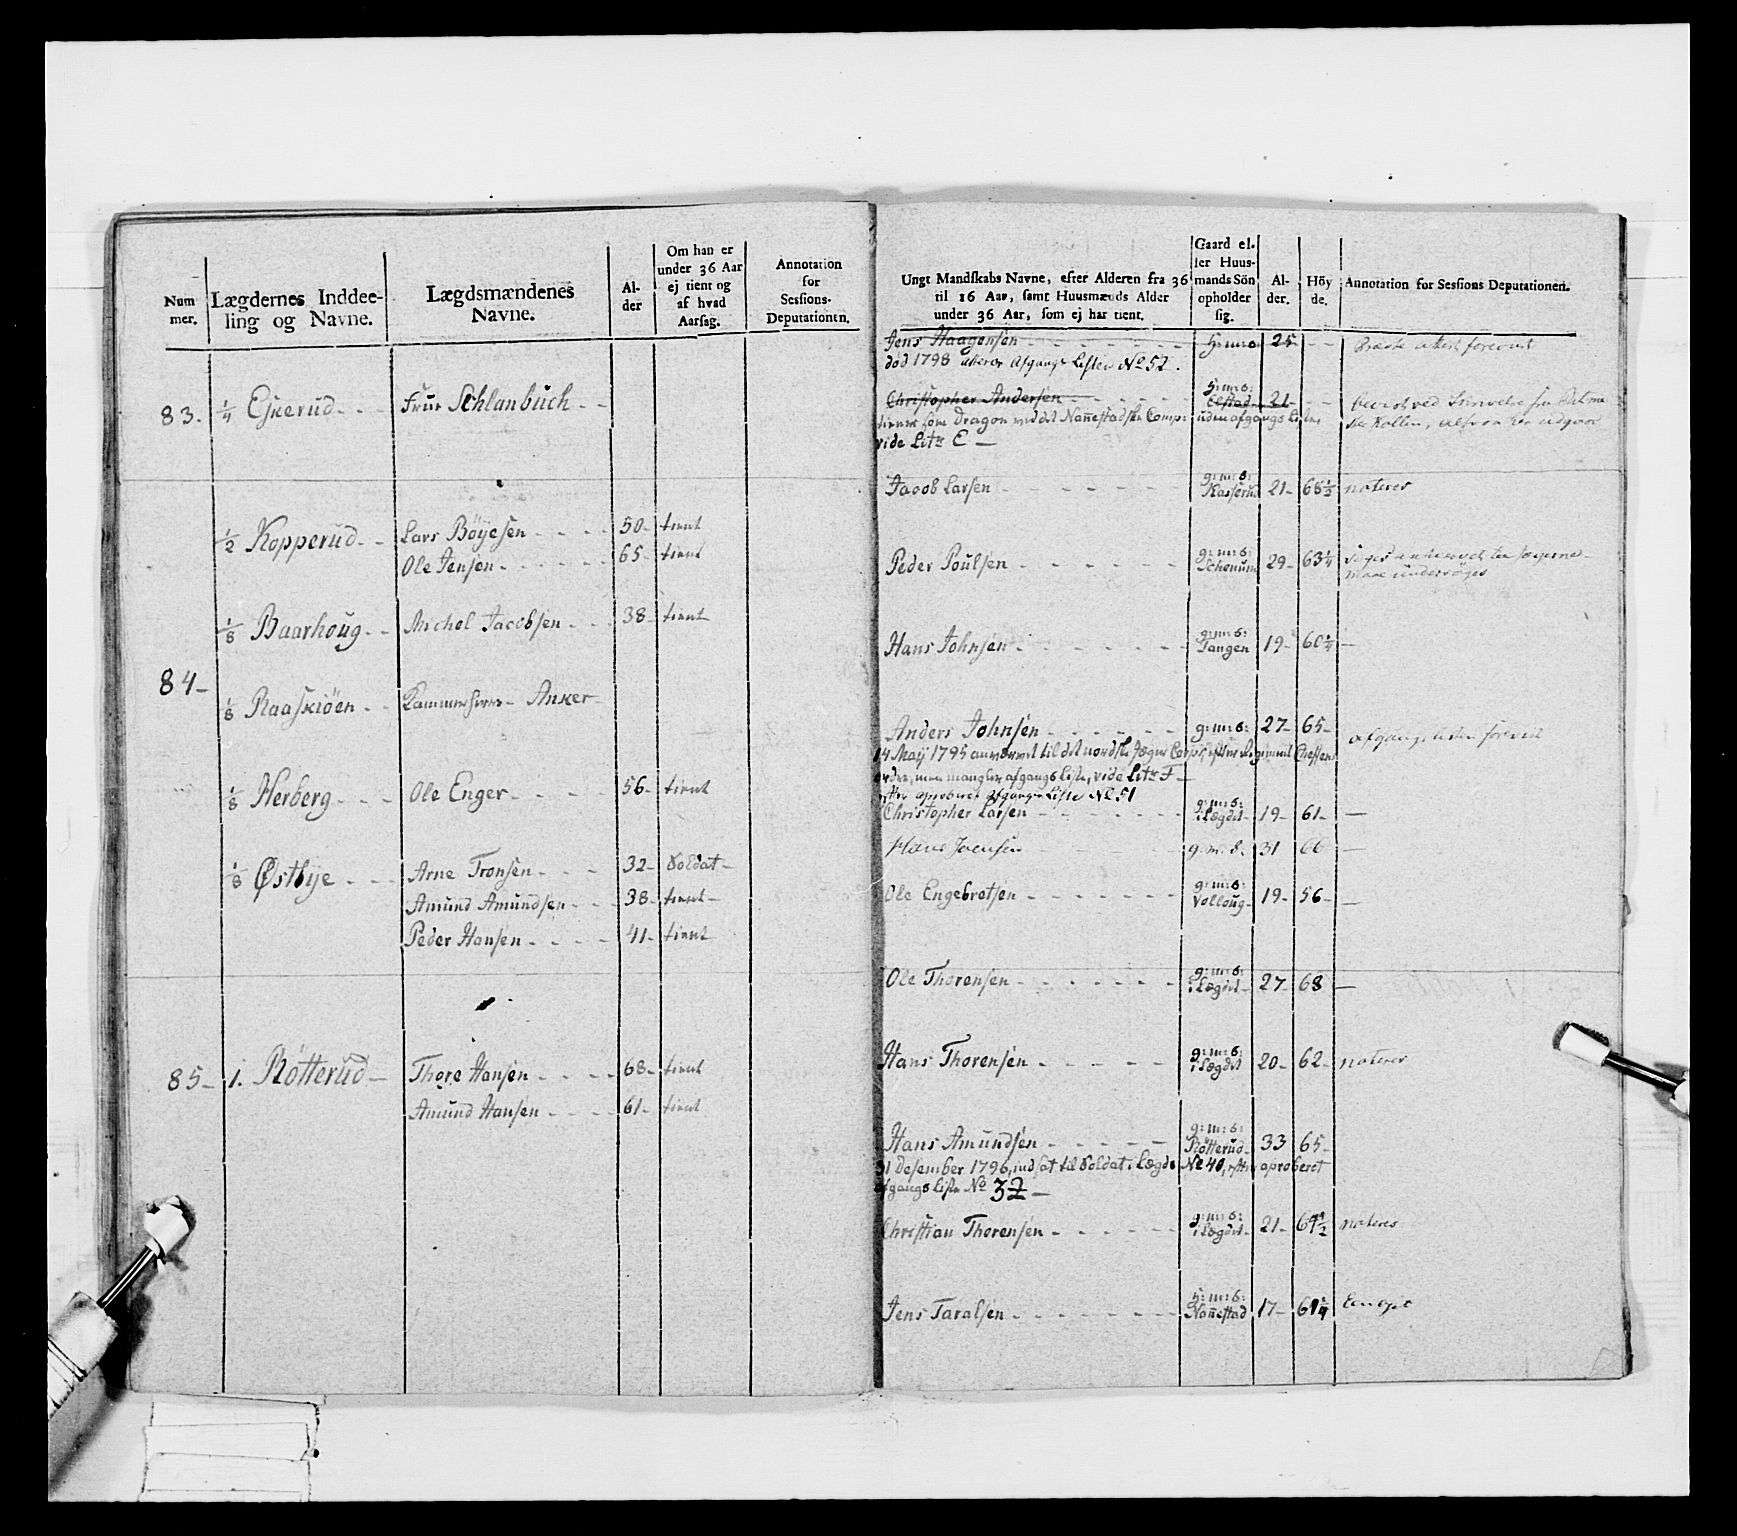 Num
mer.
Lægdernes Inddee-
ling og Navne.
Lægdsmændenes
Navne.
Al-
der
Om han er
under 36 Aar
ej tient og
af hvad
Aarsag.
Annotation
for
Sessions-
Deputationen.
83. 1/4 Eskerud Frue Schlanbuch
1/2 Kopperud Lars Böyesen 50 tient
Ole Jensen 65 tient
1/8 Baarhoug Michel Jacobsen 38 tient
84
1/8 Raaskiöen Kammerherre Anker
1/8 Herberg Ole Enger 56 tient
1/8 Østbye Arne Tronsen 32 Soldat
Amund Amundsen 38 tient
Peder Hansen 41 tient
85 1. Rötterud Thore Hansen 68 tient
Amund Hansen 61 tient
Ungt Mandskabs Navne, efter Alderen fra 36
til 16 Aar, samt Huusmænds Alder
under 36 Aar, som ej har tient.
Gaard el-
ler Huus-
mands Sön
opholder
sig.
Al-
der.
Höy
de.
Annotation for Sessions Deputationen.
Jens Haagensen 25
död 1798 Afgangs Listen No 52.
Christopher Andersen h:m:s: 21
tiener som Dragon ved det Nannestadske Comp: uden afgangs Liste,
vide Litr E
Jacob Larsen g:m:s: 21 68 1/2 noteres
Peder Poulsen g:m:s: 29 63 1/4
Hans Johnsen g:m:s: Tangen 19 60 1/4
Anders Johnsen g:m:s: 27 65
14 Maij 1795 anværvet til det nordske Jæger Corps, efter Regiment Cheffens
ordre, men mangler afgangs Liste, vide Litr F
efter aproberet Afgangs Liste No 51
Christopher Larsen g:m:s: i Lægdet 19 61
Hans Joensen g.m.s. 31 66
Ole Engebretsen g:m:s: Volloug 19 56
Ole Thorensen g:m:s: i Lægdet 27 68
Hans Thorensen g:m:s: i Lægdet 20 62 noteres
Hans Amundsen g:m:s: Rötterud 33 65
31 Desember 1796, indsat til Soldat i Lægd No 40, efter aproberet
afgangs Liste No 32
Christian Thorensen g:m:s: i Lægdet 21 noteres
Jens Taralsen h:m:s: Nannestad 17 61 1/4